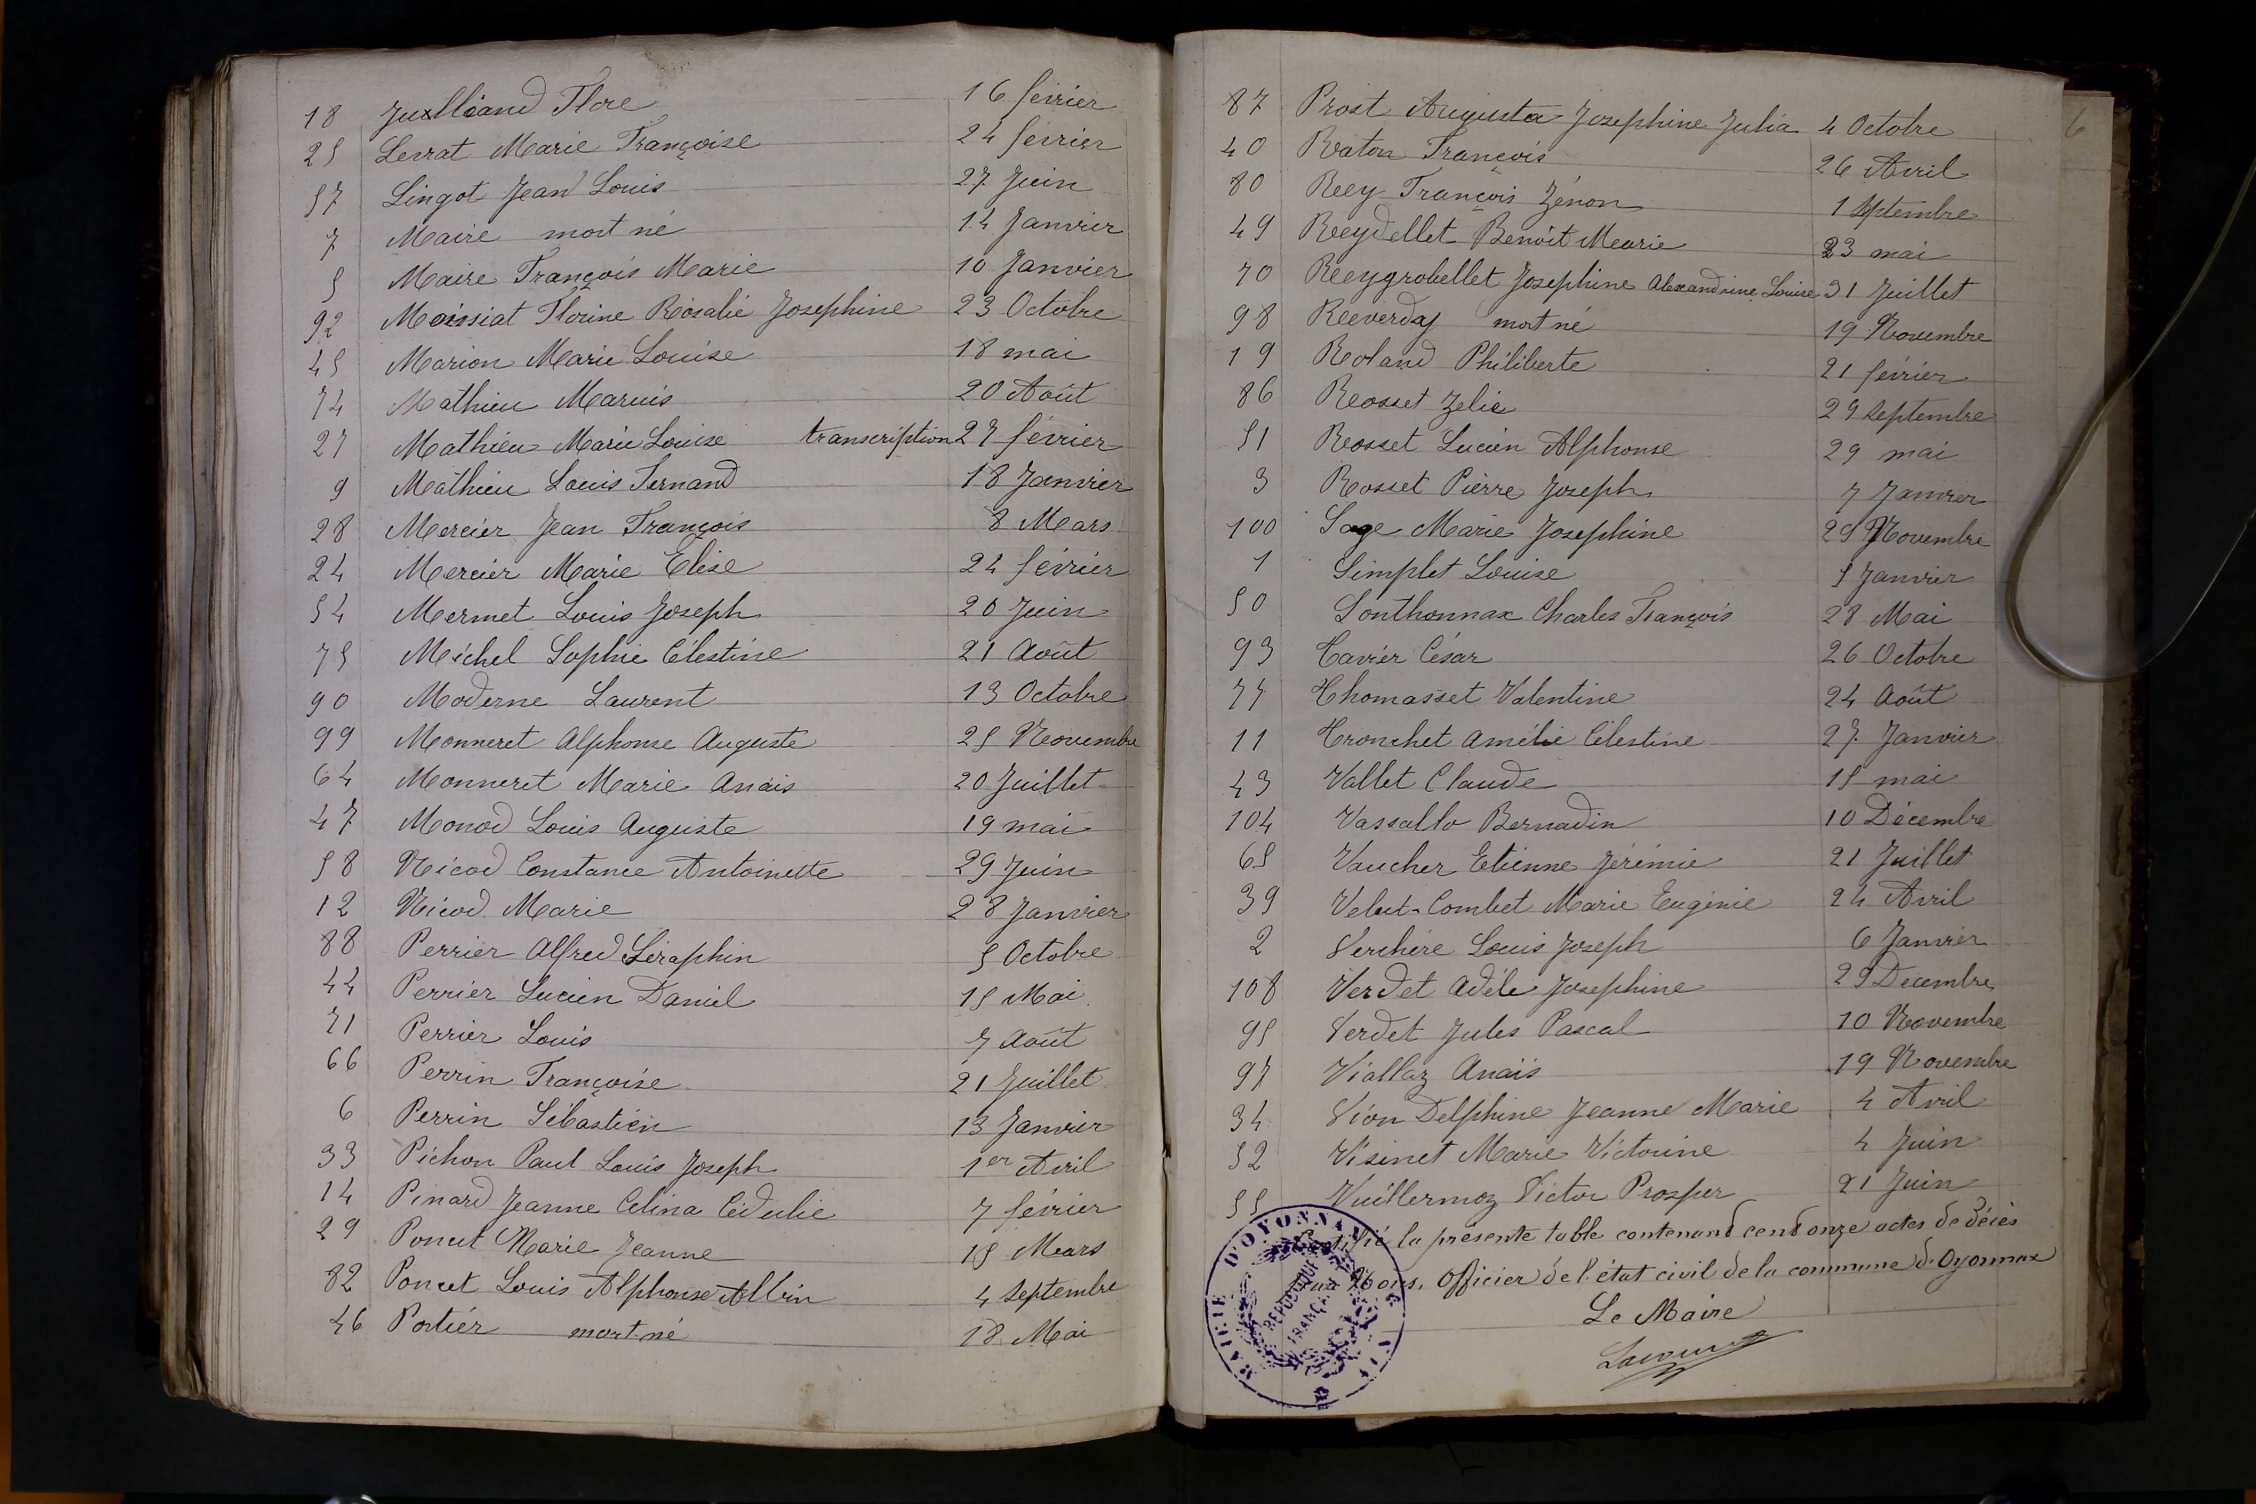 18 Juilliand Flore 16 février
25 Levrat Marie Françoise 24 février
57 Lingot Jean Louis 27 Juin
7 Maire mort né 14 Janvier
5 Maire François Marie 10 Janvier
92 Moissiat Florine Rosalie Josephine 23 Octobre
45 Marion Marie Louise 18 mai
74 Mathieu Marius 20 Août
27 Mathieu Marie Louise transcription 27 février
9 Mathieu Louis Fernand 18 Janvier
28 Mercier Jean François 8 Mars
24 Mercier Marie Elise 24 février
54 Mermet Louis Joseph 20 Juin
75 Michel Sophie Célestine 21 Août
90 Moderne Laurent 13 Octobre
99 Monneret Alphonse Auguste 25 Novembre
64 Monneret Marie Anaïs 20 Juillet
47 Monod Louis Auguste 19 mai
58 Nicod Constance Antoinette 29 Juin
12 Nicod Marie 28 Janvier
88 Perrier Alfred Séraphin 5 Octobre
44 Perrier Lucien Daniel 15 Mai
71 Perrier Louis 7 Août
66 Perrin Françoise 21 Juillet
6 Perrin Sébastien 13 Janvier
33 Pichon Paul Louis Joseph 1er Avril
14 Pinard Jeanne Celina Cédulie 7 février
29 Poncet Marie Jeanne 15 Mars
82 Poncet Louis Alphonse Albin 4 septembre
46 Portier mort né 18 Mai
6
87 Prost Augusta Josephine Julia 4 Octobre
40 Raton François 26 Avril
80 Rey François Zénon 1 septembre
49 Reydellet Benoit Marie 23 mai
70 Reygrobellet Josephine Alexandrine Louise 31 Juillet
98 Reverdy mort né 19 Novembre
19 Roland Philiberte 21 février
86 Rosset Zelie 29 septembre
51 Rosset Lucien Alphonse 29 mai
3 Rosset Pierre Joseph 7 Janvier
100 Sage Marie Josephine 29 Novembre
1 Simplet Louise 5 Janvier
50 Sonthonnax Charles François 28 Mai
93 Tavier César 26 Octobre
77 Thomasset Valentine 24 Août
11 Tronchet Amélie Célestine 27 Janvier
43 Vallet Claude 15 mai
104 Vassallo Bernadin 10 Décembre
65 Vaucher Etienne Jérémie 21 Juillet
39 Velut-Combet Marie Eugénie 24 Avril
2 Verchère Louis Joseph 6 Janvier
108 Verdet Adèle Josephine 29 Décembre
95 Verdet Jules Pascal 10 Novembre
97 Viallaz Anaïs 19 Novembre
34 Vion Delphine Jeanne Marie 4 Avril
52 Visinet Marie Victorine 4 Juin
55 Vuillermoz Victor Prosper 21 Juin
Certifié la présente table contenant cent onze actes de décès
par Nous, Officier de l'état civil de la commune d'Oyonnax
Le Maire
MAIRIE D'OYONNAX
RÉPUBLIQUE
FRANÇAISE
AIN